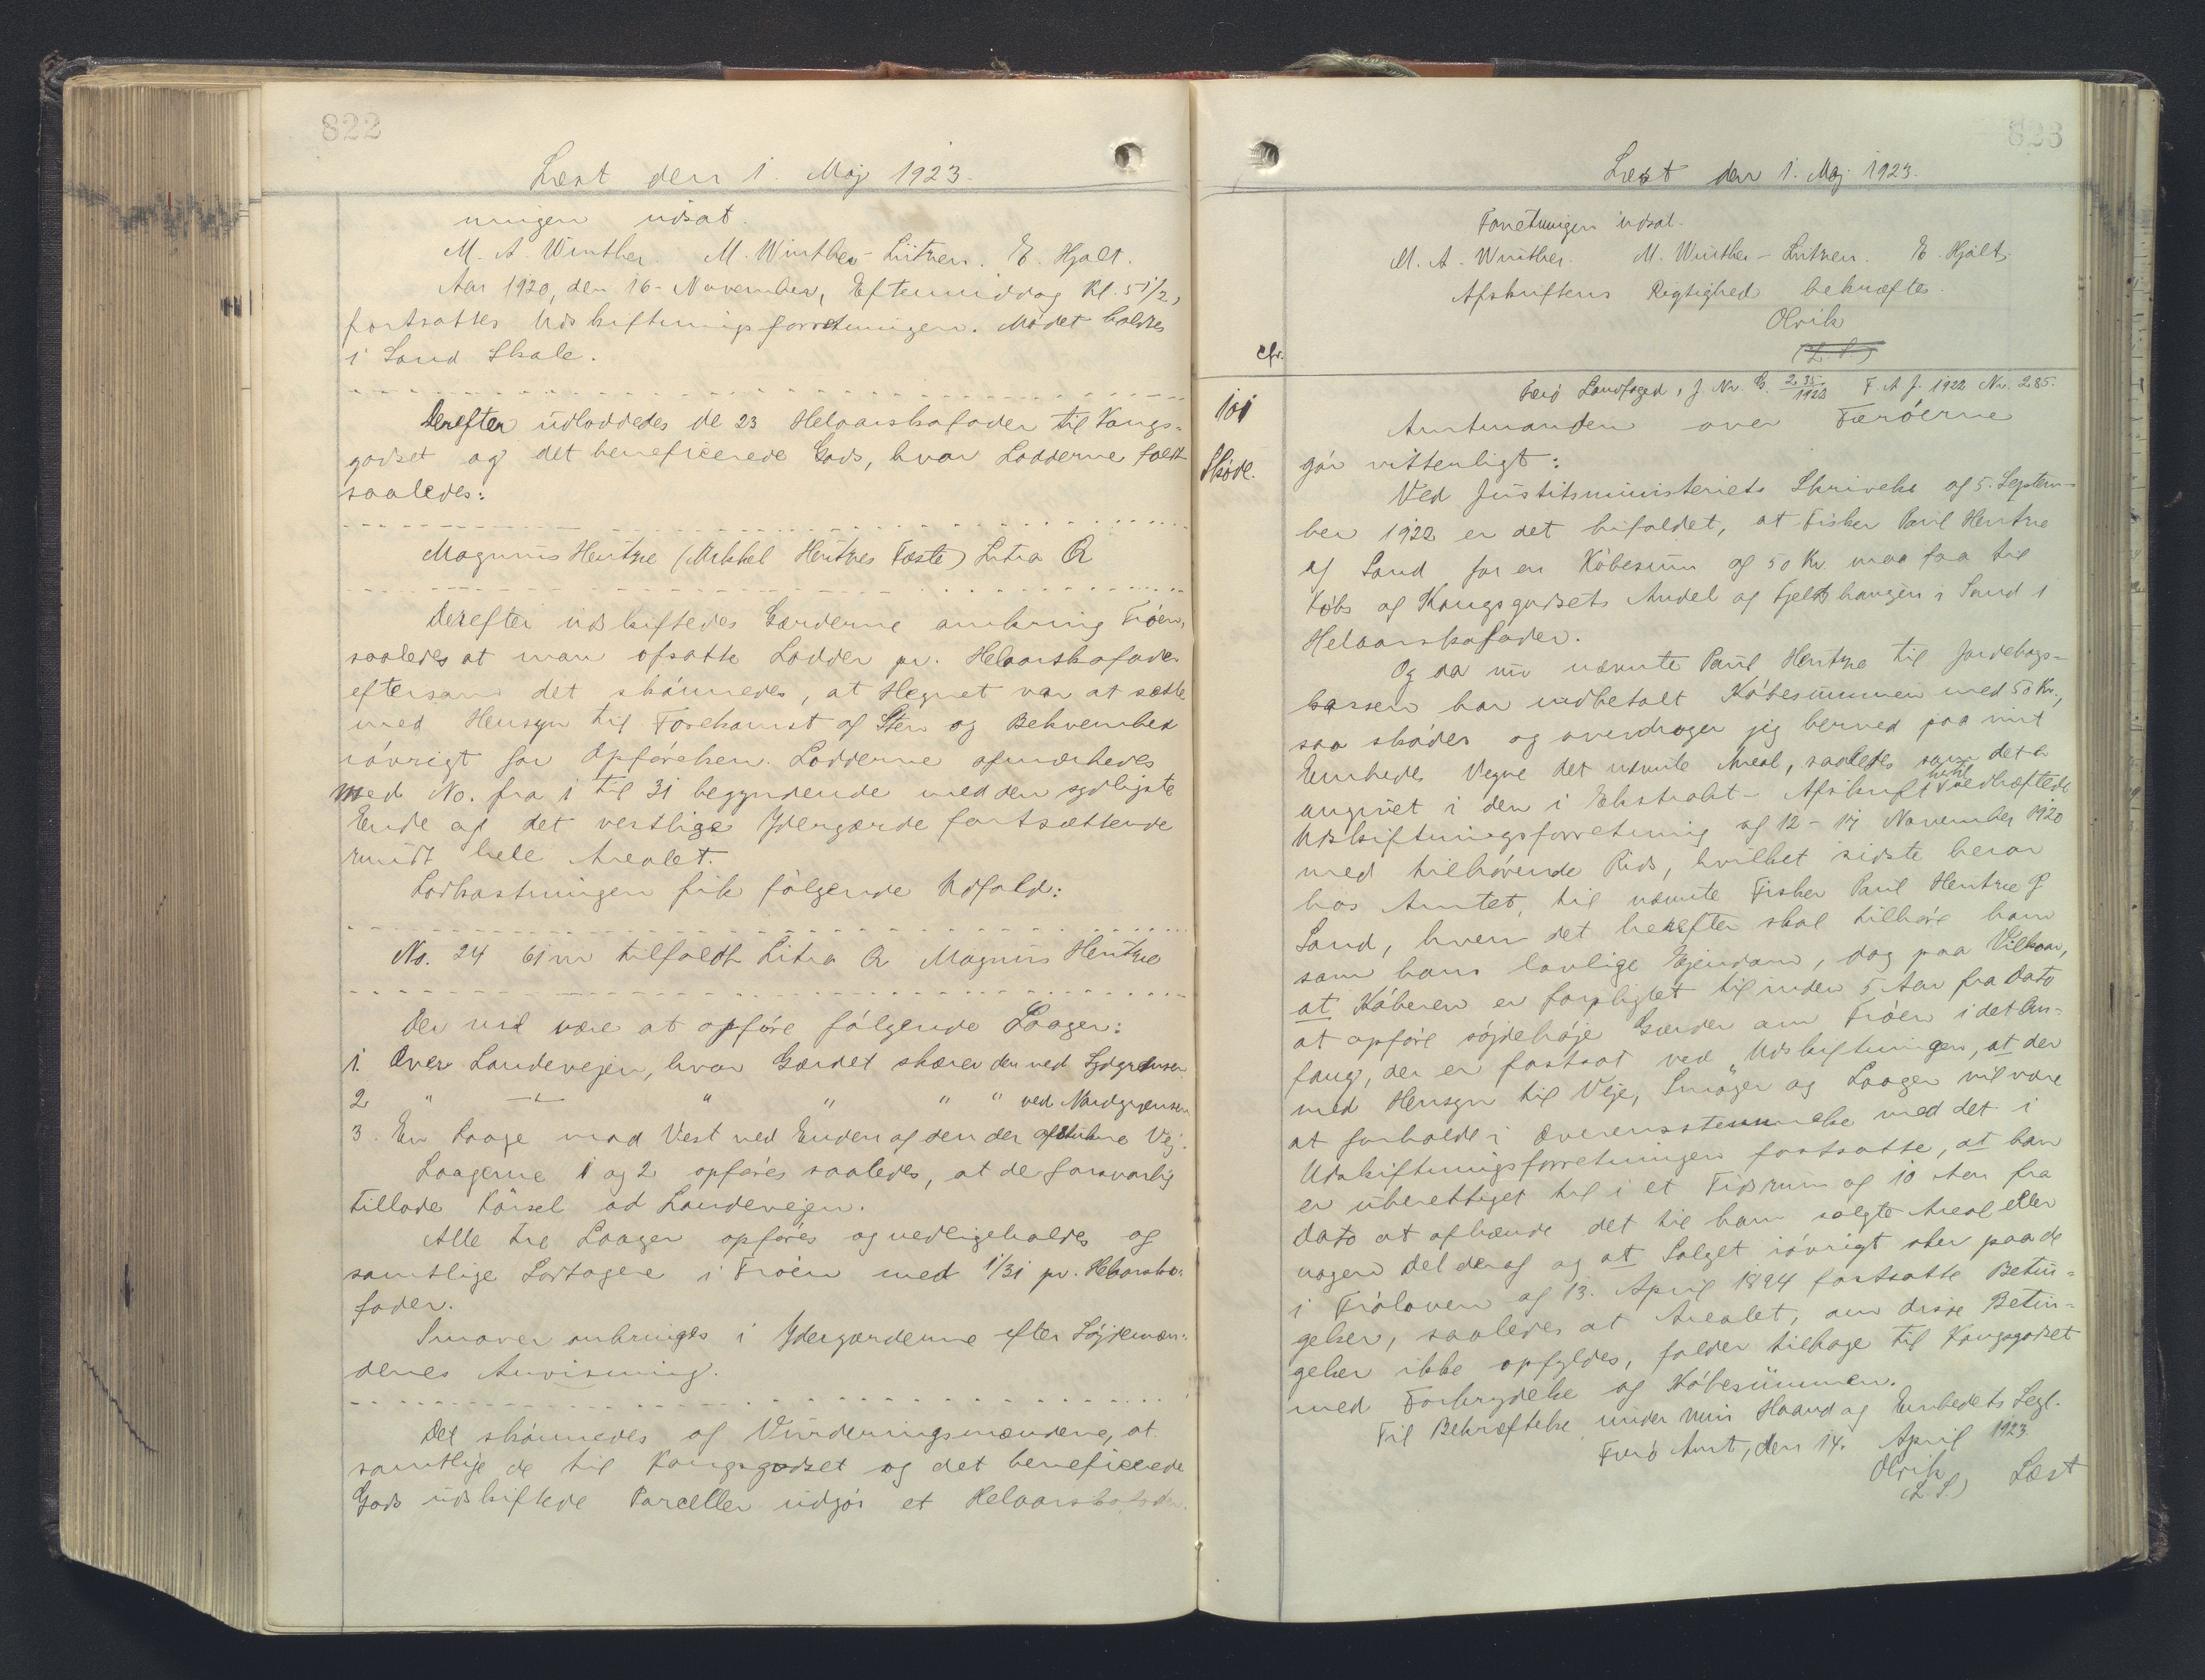 822
Læst den 1. Maj 1923.
ningen udsat.
M. A. Winther. M. Winther-Lützen. E. Hjalt.
Aar 1920, den 16. November, Eftermiddag Kl. 5 1/2,
fortsattes Udskiftningsforretningen. Mødet holdtes
i Sand Skole.
Derefter udloddedes de 23 Helaarskofoder til Kongs-
godset og det beneficerede Gods, hvor Lodderne faldt
saaledes:
Magnus Hentze (Mikkel Hentzes Fæste) Litra Q
Derefter udskiftedes Gærderne omkring Trøen,
saaledes at man afsatte Lodder pr. Helaarskofoder
eftersom det skønnedes, at Hegnet var at sætte
med Hensyn til Forekomst af Sten og Bekvemhed
iøvrigt for Opførelsen. Lodderne afmærkedes
med No. fra 1 til 31 begyndende med den sydligste
Ende af det vestlige Ydergærde fortsættende
rundt hele Arealet.
Lodkastningen fik følgende Udfald:
No. 24 61 m tilfaldt Litra Q Magnus Hentze
Der vil være at opføre følgende Laager:
1. Over Landevejen, hvor Gærdet skærer den ved Sydgrænsen
2. " " " " " ved Nordgrænsen
3. En Laage mod Vest ved Enden af den der afstukne Vej.
Laagerne 1 og 2 opføres saaledes, at de forsvarlig
tillade Kørsel ad Landevejen.
Alle tre Laager opføres og vedligeholdes og
samtlige Lodtagere i Trøen med 1/31 pr. Helaarsko-
foder.
Smover anbringes i Ydergærderne efter Syjnmæn-
denes Anvisning.
Det skønnedes af Vurderingsmændene, at
samtlige de til Kongsgodset og det beneficerede
Gods udskiftede Parceller udgør et Helaarskofoder.
823
Læst den 1. Maj 1923.
Forretningen udsat.
M. A. Winther. M. Winther-Lützen. E. Hjalt.
Afskriftens Rigtighed bekræftes.
Olrik
(L. S.)
cfr.
Færø Landfoged, J. Nr. G. 235/1923 F. A. J. 1922 Nr. 285.
101
Amtmanden over Færøerne
Skøde.
gør vitterligt:
Ved Justitsministeriets Skrivelse af 5. Septem-
ber 1922 er det bifaldet, at Fisker Paul Hentze
af Sand for en Købesum af 50 Kr. maa faa til
Købs af Kongsgodsets Andel af Fjeldhaugen i Sand 1
Helaarskofoder.
Og da nu nævnte Paul Hentze til Jordebogs-
kassen har indbetalt Købesummen med 50 Kr.,
saa skøder og overdrager jeg herved paa mit
Embeds Vegne det nævnte Areal, saaledes som det er
angivet i den i Ekstrakt-Afskrift hertil vedhæftede
Udskiftningsforretning af 12-17 November 1920
med tilhørende Rids, hvilket sidste beror
hos Amtet, til nævnte Fisker Paul Hentze af
Sand, hvem det herefter skal tilhøre ham
som hans lovlige Ejendom, dog paa Vilkaar,
at Køberen er forpligtet til inden 5 Aar fra Dato
at opføre søjdehøje Gærder om Trøen i det Om-
fang, der er fastsat ved Udskiftningen, at der
med Hensyn til Veje, Smøger og Laager vil være
at forholde i Overensstemmelse med det i
Udskiftningsforretningen fastsatte, at han
er uberettiget til i et Tidsrum af 10 Aar fra
Dato at afhænde det til ham solgte Areal eller
nogen Del deraf og at Salget iøvrigt sker paa de
i Trøloven af 13. April 1894 fastsatte Betin-
gelser, saaledes at Arealet, om disse Betin-
gelser ikke opfyldes, falder tilbage til Kongsgodset
med Forbrydelse af Købesummen.
Til Bekræftelse under min Haand og Embedets Segl.
Færø Amt, den 14. April 1923.
Olrik
(L. S.) Læst